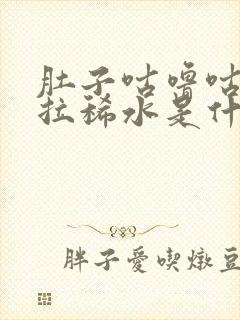 肚子咕噜咕
拉稀水是什
胖子愛喫燉豆